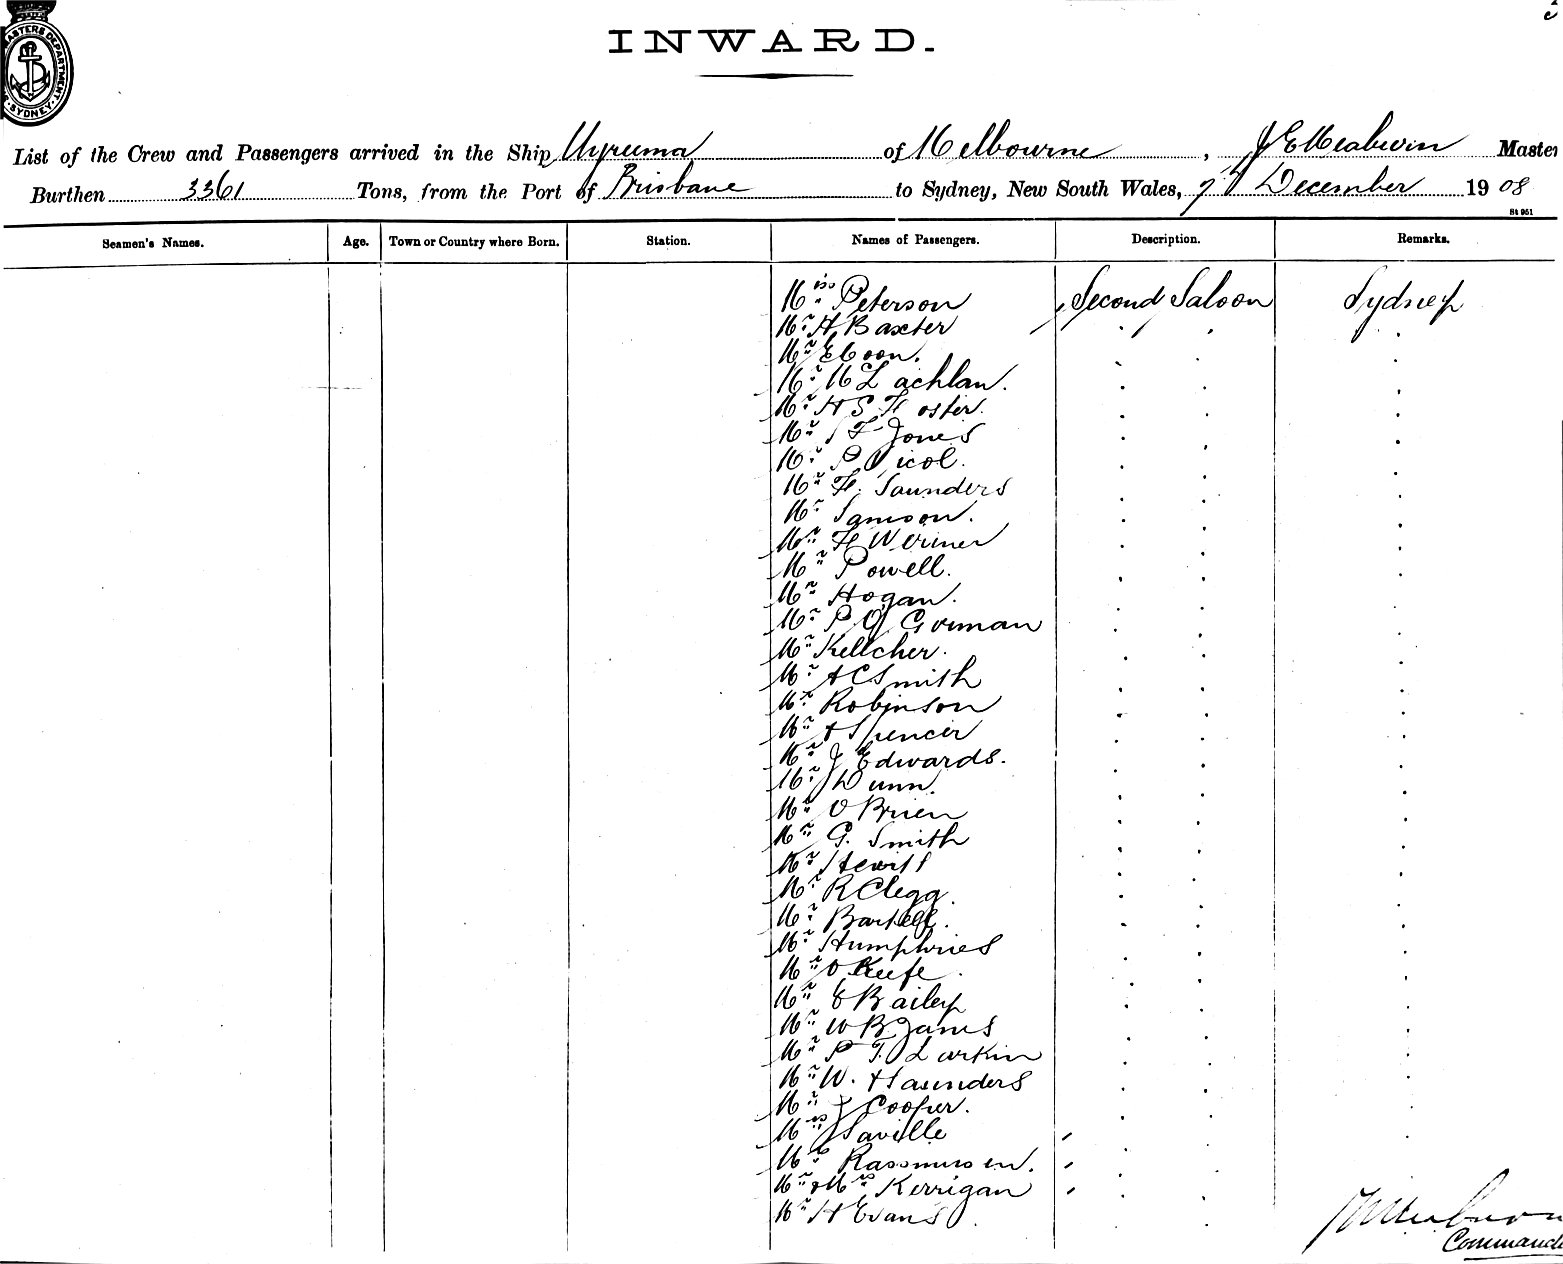 INWARD.
MASTERS DEPARTMENT
SYDNEY
List of the Crew and Passengers arrived in the Ship Wyreema of Melbourne, Master
Burthen 3361 Tons, from the Port of Brisbane to Sydney, New South Wales, December 1908
St 951
Seamen's Names. Age. Town or Country where Born. Station. Names of Passengers. Description. Remarks.
Miss Peterson Second Saloon Sydney
Mr A Baxter
Mr E Coon.
Mr McLachlan.
Mr H S Foster.
Mr S F Jones
Mr P Nicol.
Mr F. Saunders
Mr Samson.
Mr F Werner
Mr Powell.
Mr Hogan.
Mr P O'Gorman
Mr Kellcher.
Mr A C Smith
Mr Robinson
Mr A Spencer
Mr J Edwards.
Mr Dunn.
Mr O Brien
Mr G. Smith
Mr Hewitt
Mr R Clegg.
Mr
Mr Humphries
Mr O Keefe.
Mr E Bailey
Mr W B Jams
Mr P T. Larkin
Mr W. Haunders
Mr J Cooper.
Mrs Saville
Rassmussen.
Mr & Mrs Kerrigan
Mr H Evans
Commande